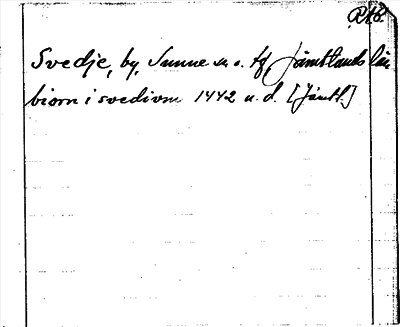 RAÖ.
Svedje, by, Sunne sn o. tg, Jämtlands län
biorn i svedivm 1442 u.d. [Jämtl.]